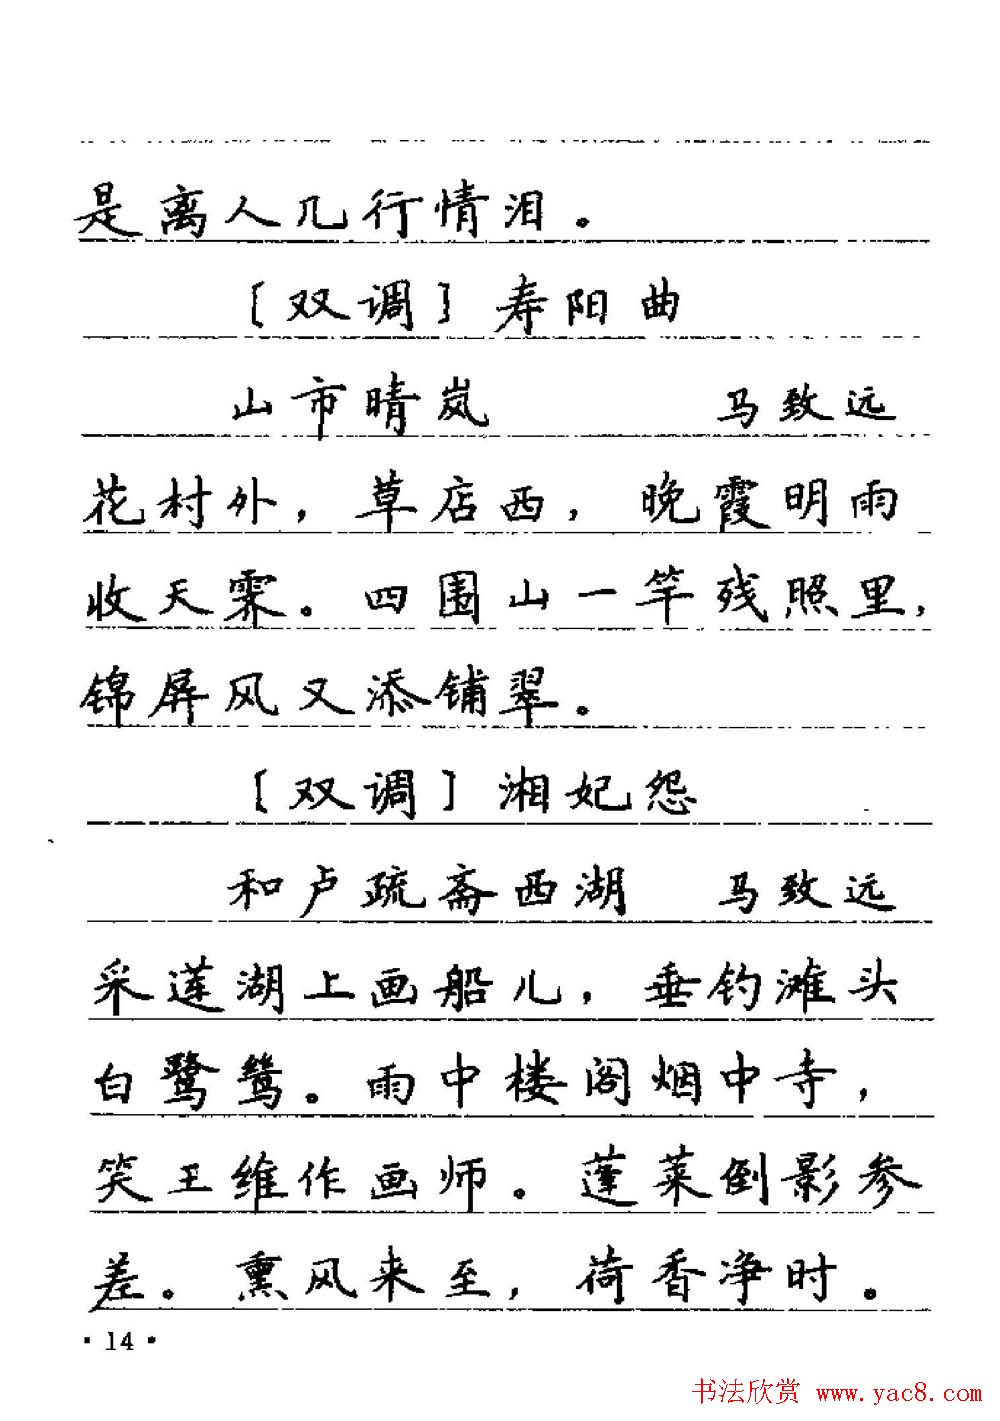 是离人几行情泪。
[双调]寿阳曲
山市晴岚 马致远
花村外，草店西，晚霞明雨
收天霁。四围山一竿残照里，
锦屏风又添铺翠。
[双调]湘妃怨
和卢疏斋西湖 马致远
采莲湖上画船儿，垂钓滩头
白鹭鸶。雨中楼阁烟中寺，
笑王维作画师。蓬莱倒影参
差。熏风来至，荷香净时。
·14·
书法欣赏 www.yac8.com